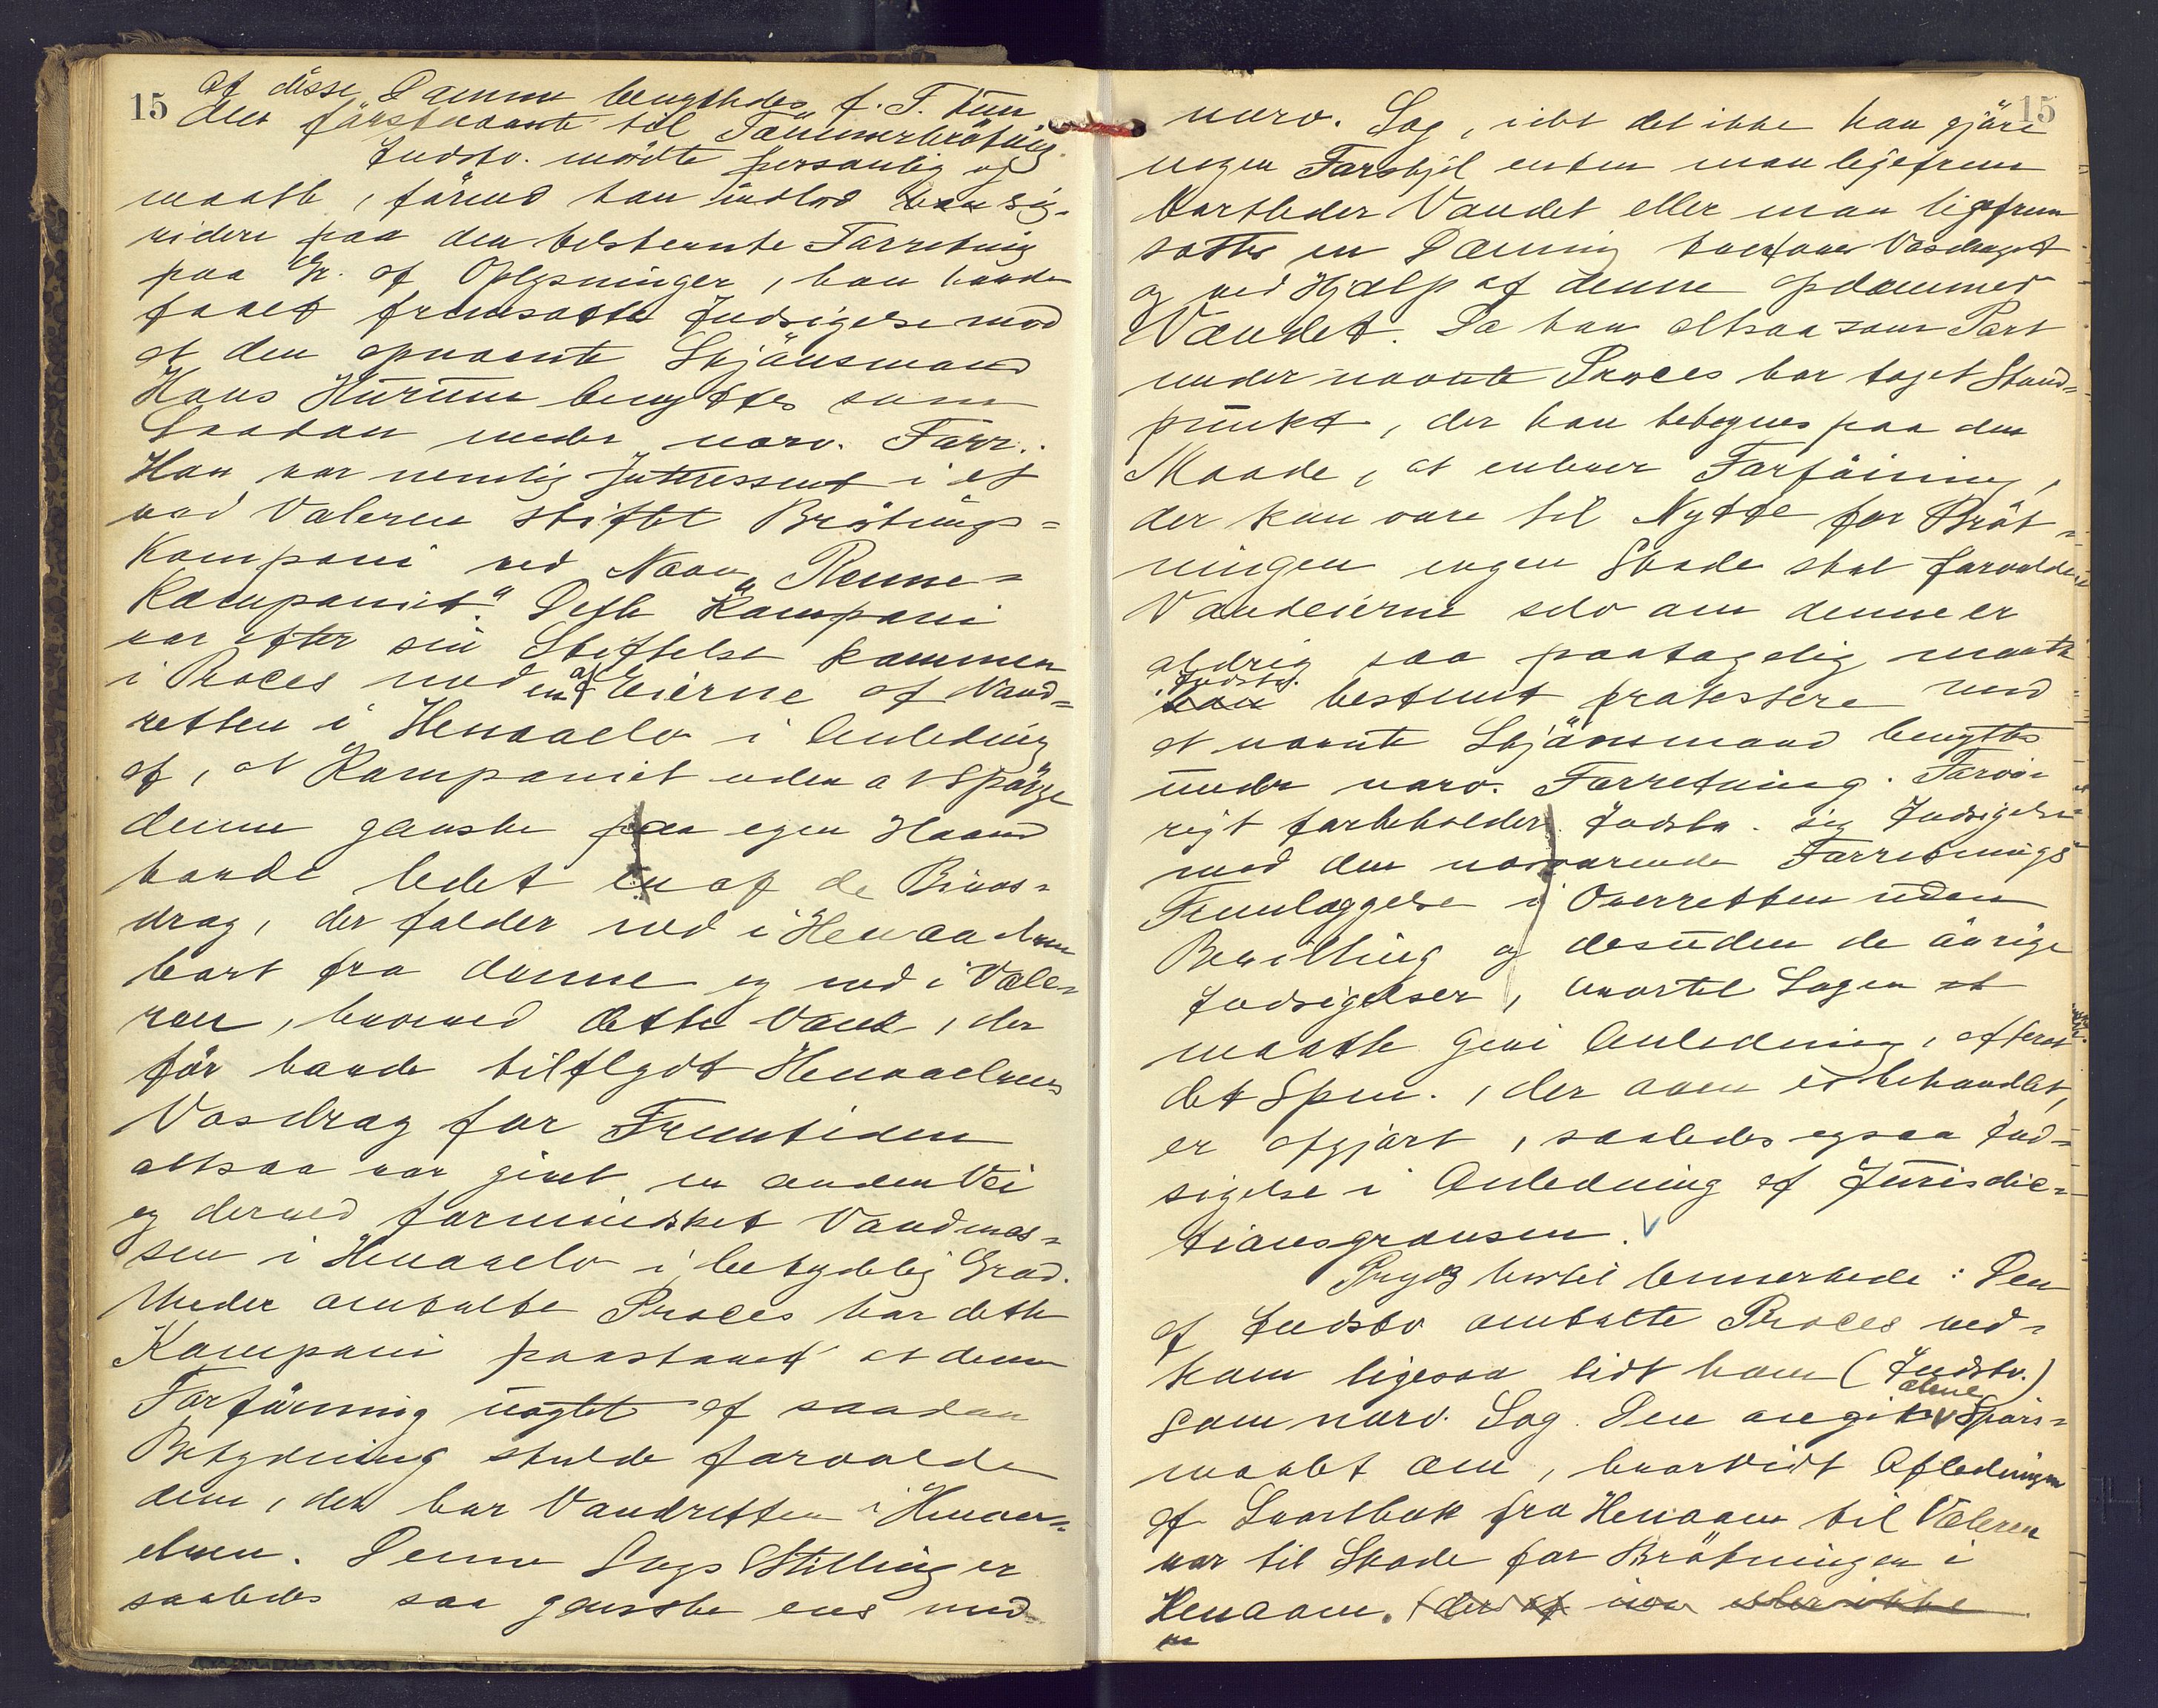 15
af disse Dæmme benyttedes f. T. kun
den förstnævnte til Tømmerbrötning.
Indstv. mödte personlig og
maatte, förend han indlod sig
videre paa den bestemte Forretning
paa Gr. af Oplysninger, han havde
faaet fremsætte Indsigelse mod
at den opnævnte Skjönsmand
Hans Hurum benyttes som
Saadan under nærv. Forr.
Han var nemlig Interessent i et
ved Valeren stiftet Brötnings=
Kompani ved Navn „Renne=
Kompaniet“. Dette Kompani
var efter sin Stiftelse kommen
i Proces med en af Eierne af Vand=
retten i Henaaelv i Anledning
af, at Kompaniet uden at Spörge
denne ganske paa egen Haand
havde ledet en af de Bivas=
drag, der falder ned i Henaaelven
bort fra denne og ned i Vale=
ren, hvorved dette Vand, der
för havde tilflydt Henaaelvens
Vasdrag for Fremtiden
altsaa var givet en anden Vei
og derved forminsket Vandmas=
sen i Henaaelv i betydelig Grad.
Under omtalte Proces har dette
Kompani paastaaet at denne
Forföining nægtet af saadan
Betydning skulde forvolde
dem, der har Vandretten i Henaa=
elven. Denne Sags Stilling er
saaledes saa ganske ens med
15
nærv. Sag, idet det ikke kan gjöre
nogen Forskjel enten man ligefrem
bortleder Vandet eller man ligefrem
sætter en Dæmning tværsover Vasdraget
og ved Hjælp af denne opdæmmer
Vandet. Da han altsaa som Part
under nævnte Proces har taget Stand=
punkt, der kan betegnes paa den
Maade, at enhver Forföining,
der kan være til Nytte for Bröt=
ningen ingen Skade skal forvolde
Vandeierne selv om denne er
aldrig saa paatagelig maatte
Indstv. bestemt protestere mod
at nævnte Skjönsmand benyttes
under nærv. Forretning. Foröv=
rigt forbeholder Indstv. sig Indsigelse
mod den nærværende Forretnings
Fremlæggelse i Overretten uden
Bevilling og desuden de övrige
Indsigelser, hvortil Sagen
maatte give Anledning, efterat
det Spm., der oven er behandlet,
er afgjort, saaledes ogsaa Ind=
sigelse i Anledning af Jurisdic=
tionsgrænsen.
Prydz hertil bemerkede: Den
af Indstv omtalte Proces ved=
kom ligesaa lidt ham (Indstv.)
som nærv. Sag. Den angik alene Spörs=
maalet om, hvorvidt Afledningen
af Svartbæk fra Henaaen til Valeren
var til Skade for Brötningen i
Henaaen. der af nu eller ikke